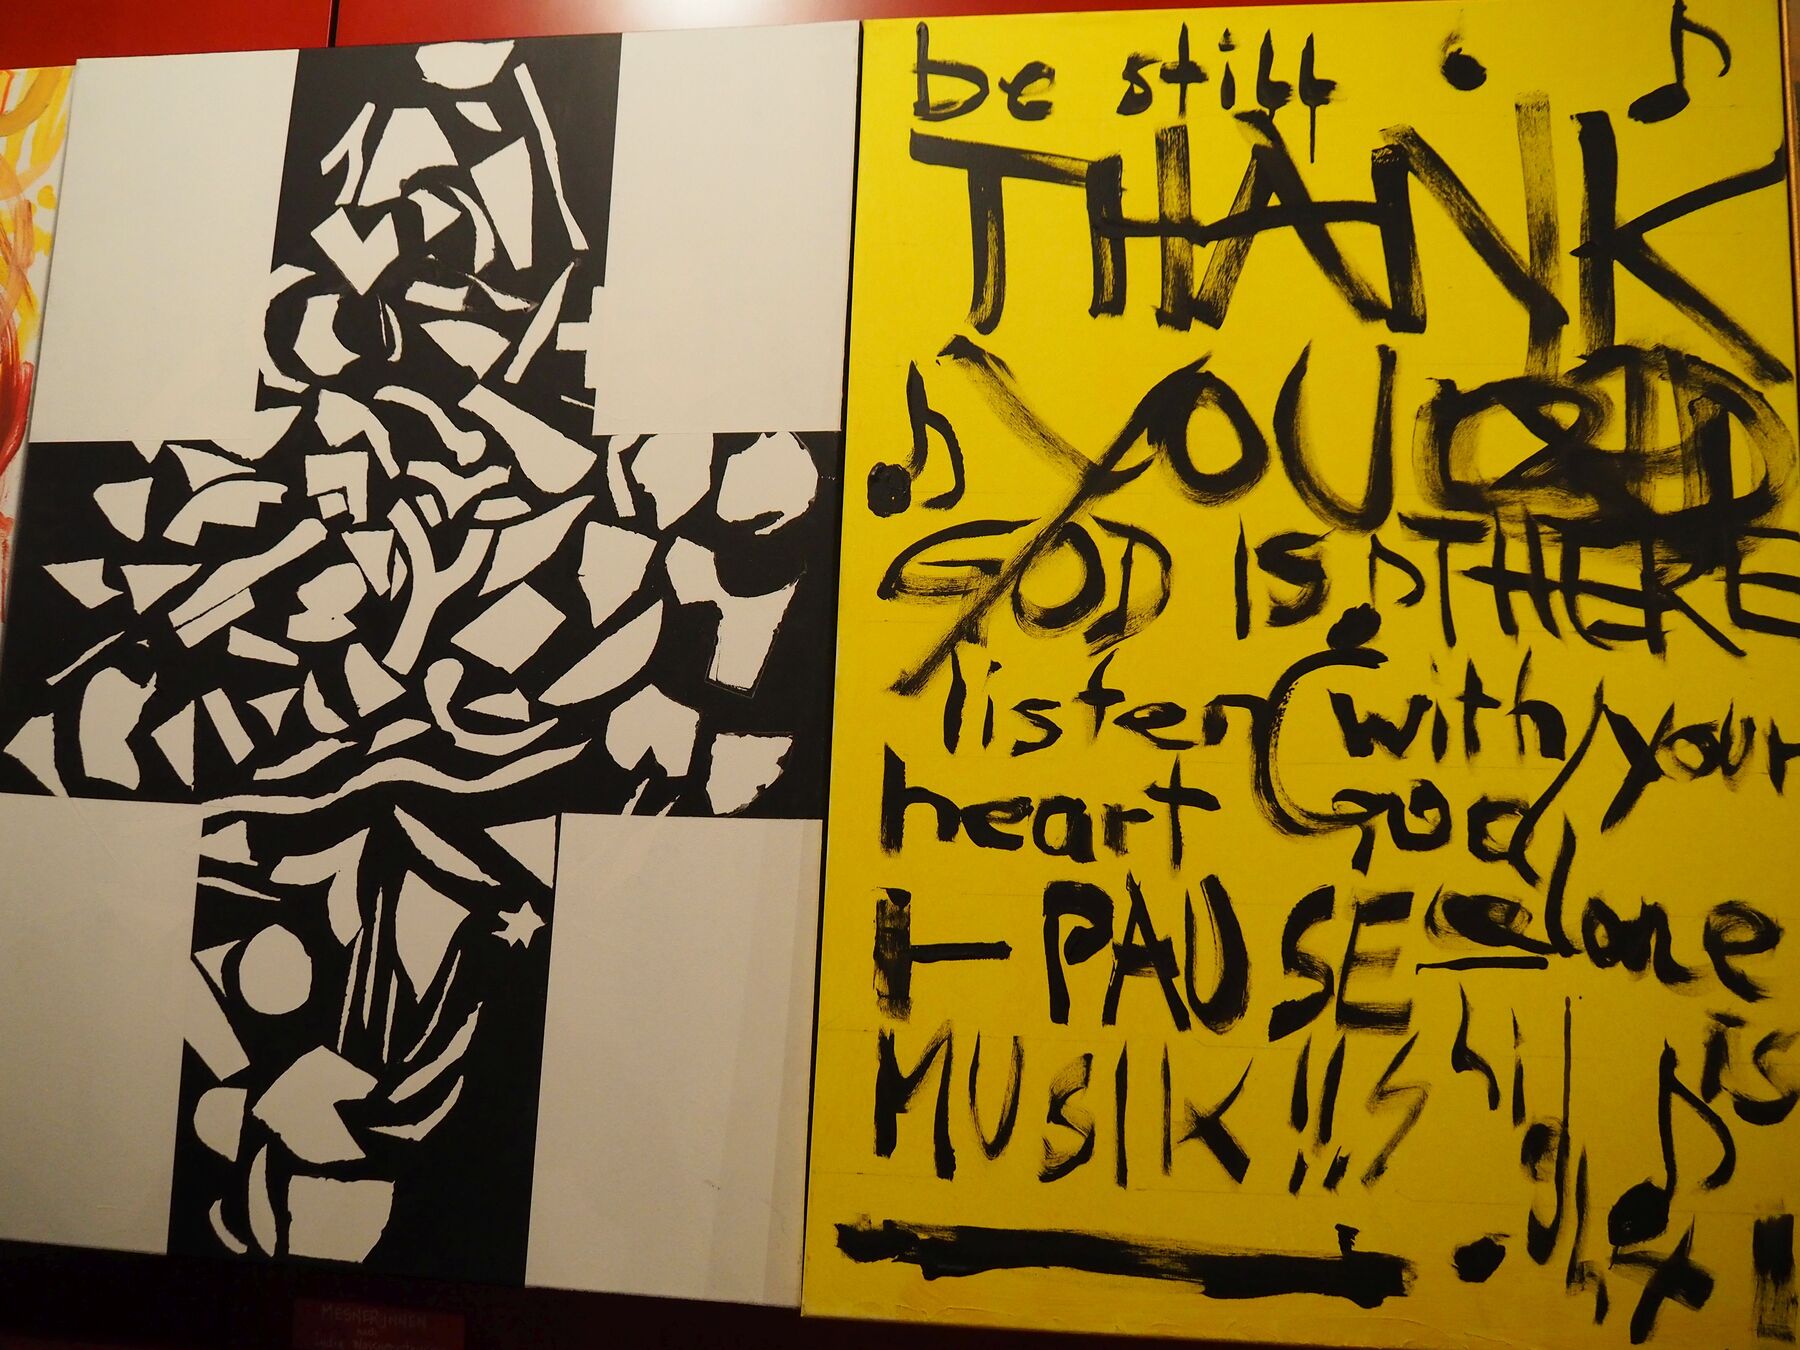 be still
THANK
YOU
GOD IS THERE
listen with your
heart God
PAUSE alone
is
MUSIK!!
MESNERINNEN